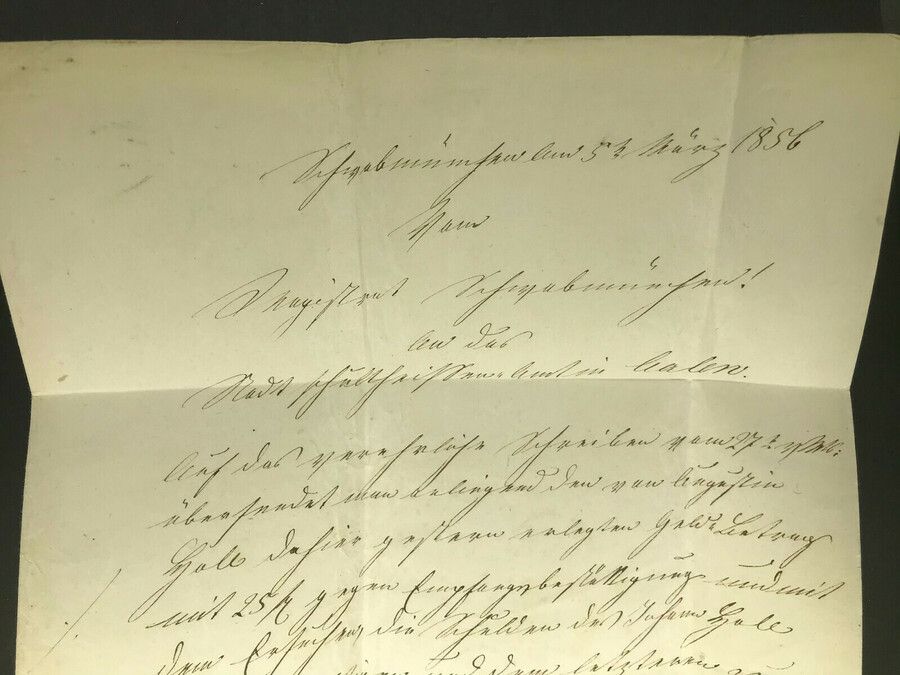 Schwabmünchen am 5t März 1856
Vom
Magistrat Schwabmünchen!
An das
Stadtschultheissen-Amt in Aalen.
Auf das verehrliche Schreiben vom 27t v. Mts:
übersendet man anliegend den von Augustin
Holl dahier gestern erlegten Geld-Betrag
mit 25 f gegen Empfangsbestättigung und mit
dem Ersuchen, die Schulden des Johann Holl
und dem letzteren